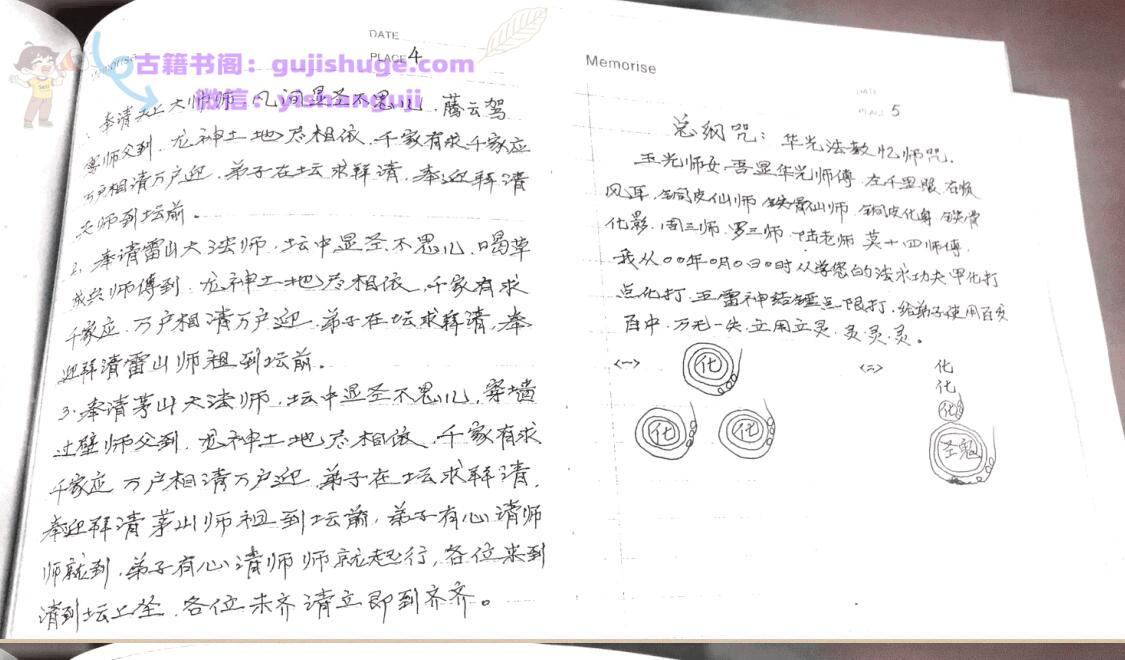 DATE
PLACE 4
Memorise
古籍书阁：gujishuge.com
微信：yishanguji
奉请天上大师师 凡间显圣不思儿，藤云驾
雾师父到，龙神土地尽相依，千家有求千家应
万户相请万户迎，弟子在坛求拜请，奉迎拜请
天师到坛前。
2、奉请雷山大法师，坛中显圣不思儿，喝草
成兵师傅到，龙神土地尽相依，千家有求
千家应，万户相请万户迎，弟子在坛求拜请，奉
迎拜请雷山师祖到坛前。
3、奉请茅山大法师，坛中显圣不思儿，穿墙
过壁师父到，龙神土地尽相依，千家有求
千家应 万户相请万户迎，弟子在坛求拜请，
奉迎拜请茅山师祖到坛前，弟子有心请师
师就到，弟子有心请师师就起行，各位来到
请到坛上坐，各位未齐请立即到齐齐。
Memorise
DATE
PLACE 5
总纲咒：华光法教忆师咒，
玉光师女，吾显华光师傅 左千里眼 右顺
风耳，铜皮仙师 铁骨仙师 铜皮化身 铁骨
化影，周三师，罗三师，陆老师 莫十四师傅，
我从00年0月0日0时从学您的法水功夫 甲化打
点化打，五雷神 打，给弟子使用百发
百中，万无一失，立用立灵，灵，灵，灵。
<一> 化
化 化
<二> 化
化
化
圣